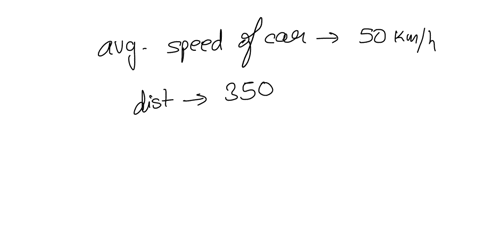 avg. speed of car → 50 Km/h
dist → 350